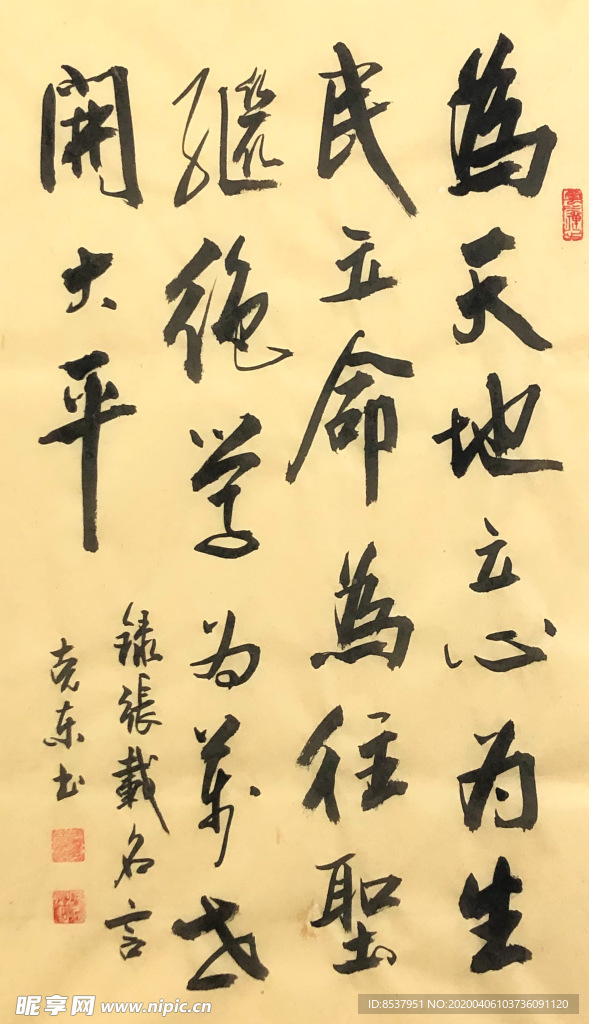 為天地立心为生
民立命為往聖
繼絕学为萬世
開大平
録張載名言
克东书
昵享网 www.nipic.cn
ID:8537951 NO:20200406103736091120